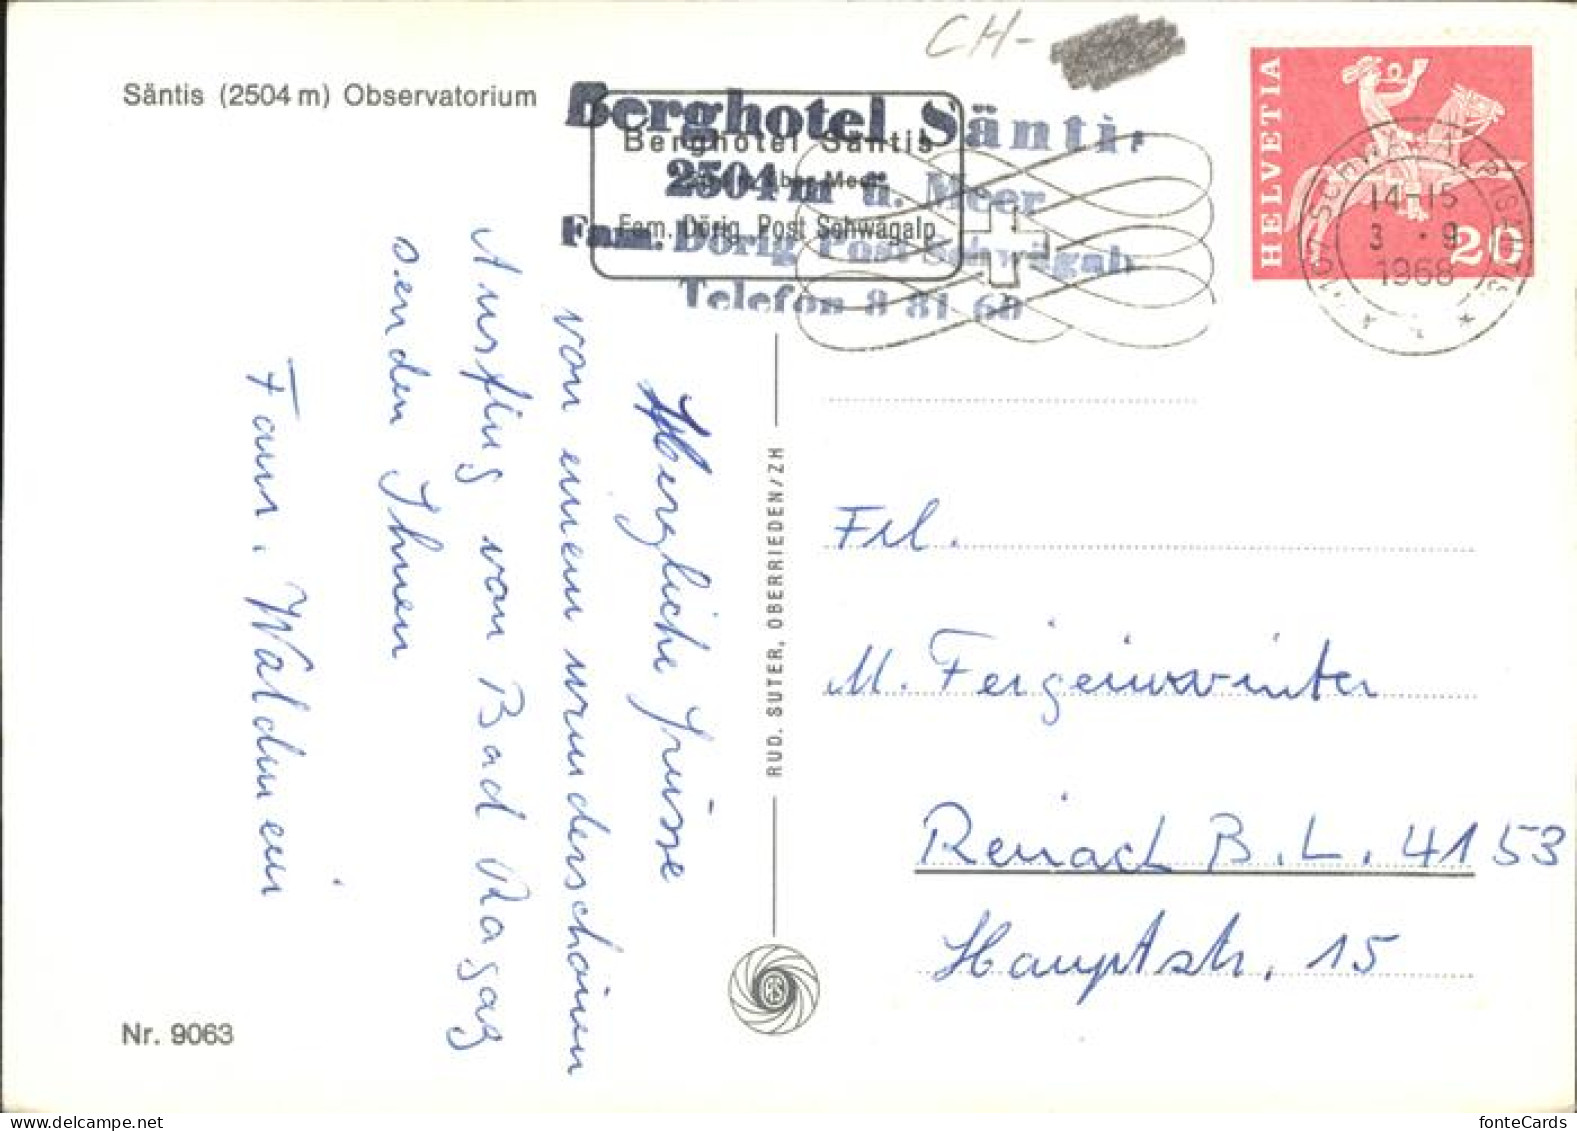 CH-
Säntis (2504 m) Observatorium
Berghotel Säntis
2504 m ü. Meer
Fam. Dörig Post Schwägalp
Telefon 8 81 60
Berghotel Säntis
über Meer
Fam. Dörig Post Schwägalp
HELVETIA
20
9107 SCHWÄGALP (SÄNTIS)
14-15
3 . 9
1968
Herzliche Grüsse
von einem wunderschönen
Ausflug von Bad Ragaz
senden Ihnen
Fam.
RUD. SUTER, OBERRIEDEN/ZH
Frl.
M. Feigenwinter
Reinach B.L. 4153
Hauptstr. 15
Nr. 9063
www.delcampe.net
fonteCards